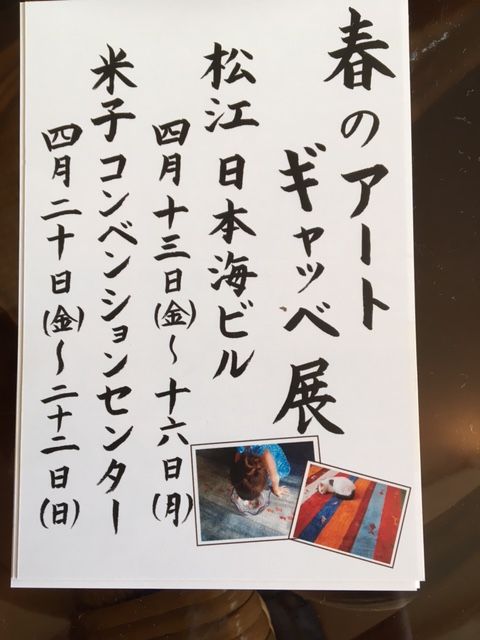 春のアート
ギャッベ展
松江 日本海ビル
四月十三日(金)〜十六日(月)
米子コンベンションセンター
四月二十日(金)〜二十二日(日)